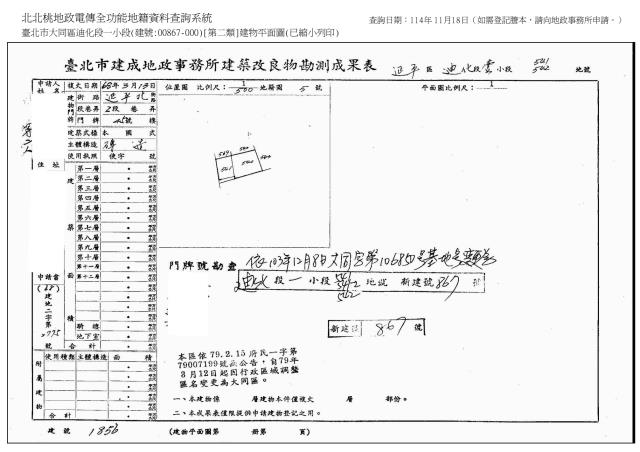 北北桃地政電傳全功能地籍資料查詢系統
查詢日期：114年11月18日（如需登記謄本，請向地政事務所申請。）
臺北市大同區迪化段一小段(建號:00867-000)[第二類]建物平面圖(已縮小列印)
臺北市建成地政事務所建築改良物勘測成果表
延平 區 迪化段壹小段 541 542 地號
申請人姓名
複丈日期 68年3月13日
位置圖 比例尺：1/500 地籍圖 5 號
平面圖比例尺：1
建物門牌
街路 延平北 街路
段巷弄 2段 巷 弄
門牌 45號 樓
建築式樣 本國式
主體構造 磚造
使用執照 使字 號
住址
建築面積
第一層
第二層
第三層
第四層
第五層
第六層
第七層
第八層
第九層
第十層
第十一層
第十二層
騎樓
地下室
合計
549 540
541 542
申請書(68)建地二字第2775號
門牌號勘查
依103年12月8日大同字第106850號基地號變更
迪化段一小段 541 542 地號 新建號867號
新建號 867 號
使用種類 主體構造 面積
附屬建物
合計
本區依79.2.15府民一字第
79007199號函公告，自79年
3月12日起因行政區域調整
區名變更為大同區。
一、本建物係 層建物本件僅複丈 層 部份。
二、本成果表僅限提供申請建物登記之用。
建號 1856
(建物平面圖第 冊第 頁)